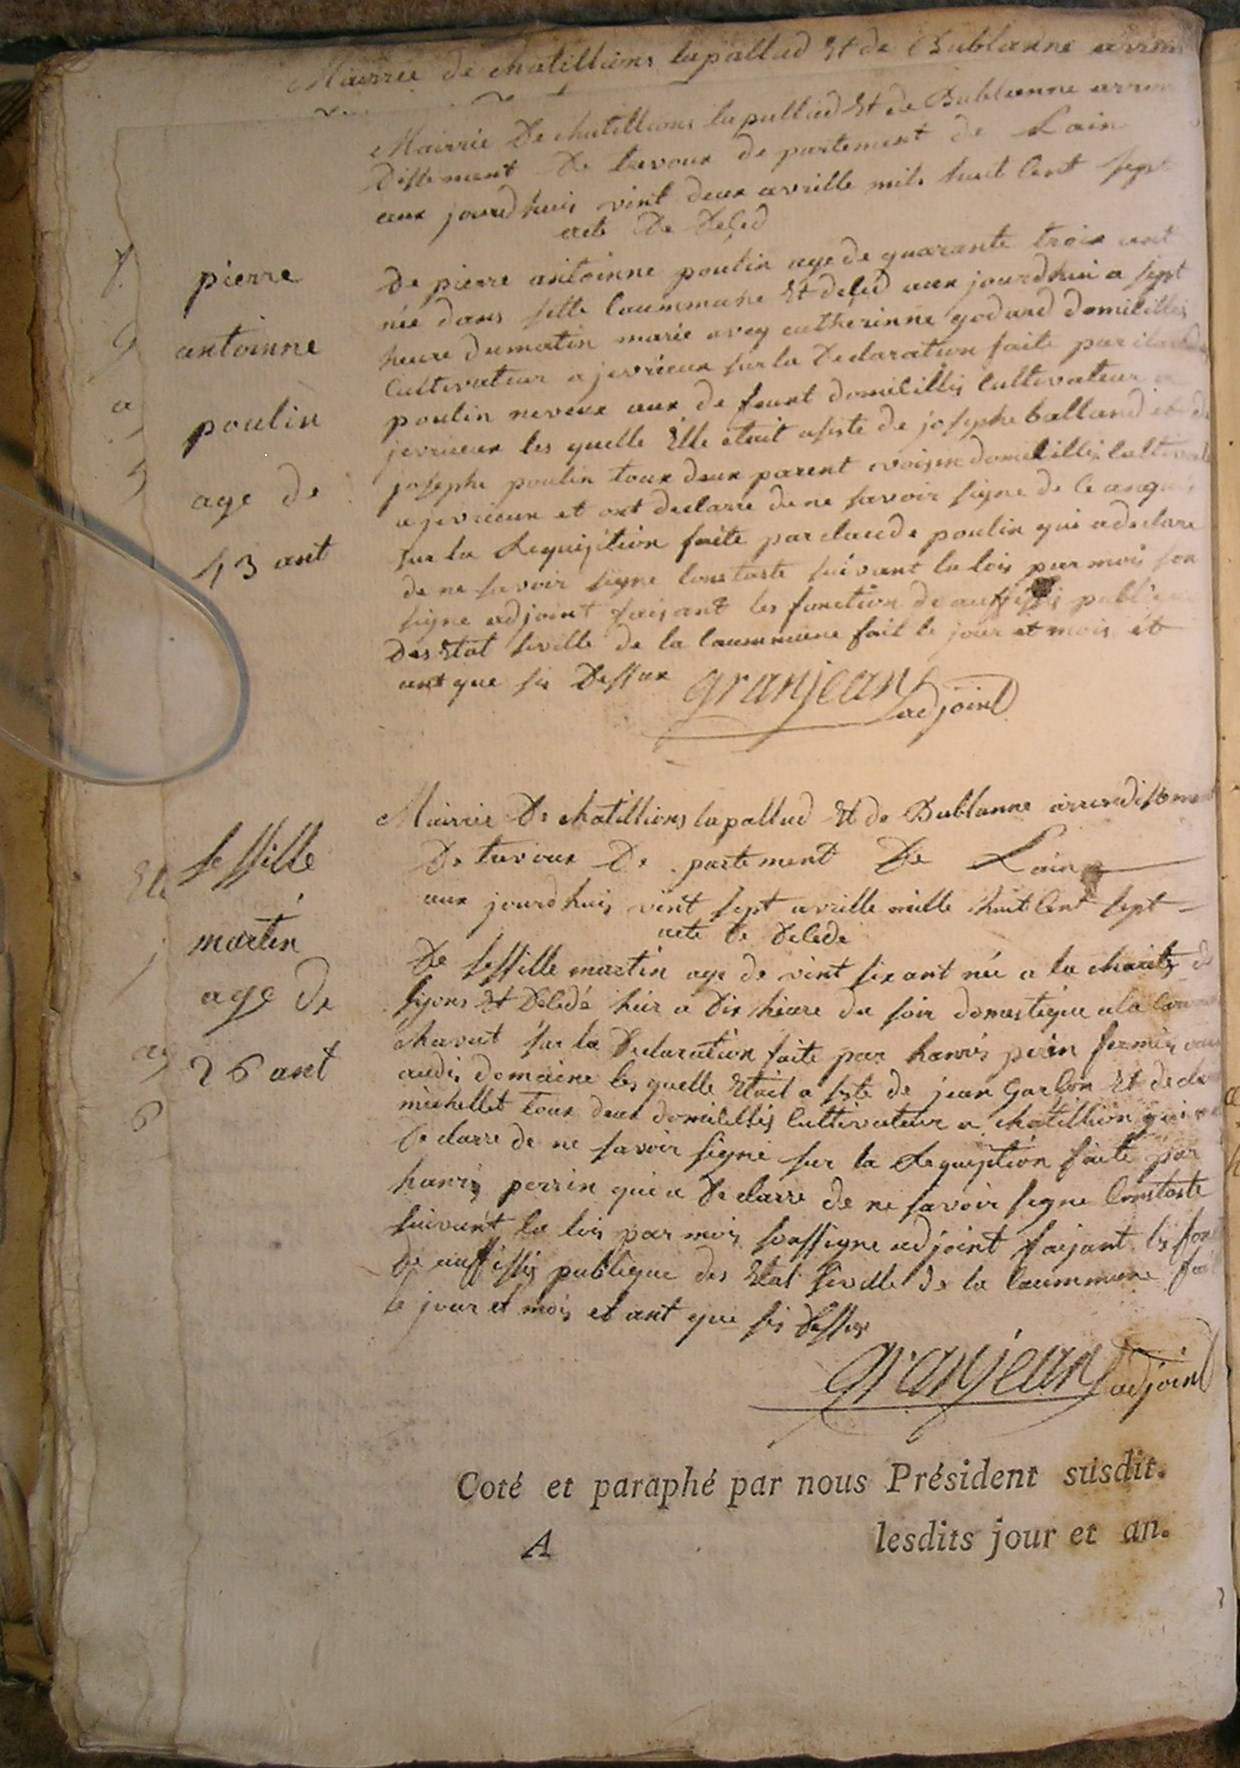 Mairrie de chatillions lapallud Et de Bublanne arron
Mairrie De chatillions lapallud Et de Bublanne arron
Dissement De trevoux de partement de Lain
aux jourdhuis vint deux avrille mils huit Cent sept
acte De Deséd
pierre
antoinne
poulin
age de
43 ant
De pierre antoinne poulin age de quarante troix ant
née dans sette Caummune Et deséd aux jourdhui a sept
heure dumatin marie avey catherinne godard domicilliés
Cultivateur a jevrieux sur la Declaration faite par
poulin neveux aux de feunt domicilliés Cultivateur a
jevrieux les quelle Elle etait asiste de josephe balland et de
josephe poulin toux deux parent voisin domicilliés Cultivat
a jevrieux et ont declarre de ne savoir signe de Ce
sur la Requisition faite par claude poulin qui a declare
de ne savoir signe Constaste suivant la lois par mois son
signe adjoint faisant les fonction de auffissiés publique
Des Etat siville de la Caummune fait le jour et mois et
ant que sis Dessux granjean
adjoint
Mairrie De chatillions lapallud Et de Bublanne arrondissement
De trevoux De partement De Lain
aux jourdhuis vint sept avrille mille huit Cent sept
acte De Deséde
sessille
martin
age De
26 ant
De sessille martin age de vint six ant née a la charité de
liyons Et Desédé hier a Dix heure du soir domestique a la
chavat sur la Declaration faite par hanris perin fermié
audis domaine les quelle Etait a siste de jean Garbon Et de
michellet toux deux domicilliés Cultivateur a chatillion qui
De clarre de ne savoir signé sur la Requisition faite par
hanris perrin qui a De clarre de ne savoir signe Constaste
suivant la lois par mois soussigne adjoint faisant les fon
De auffissiés publique des Etat siville de la Caummune fait
le jour et mois et ant que sis Dessux
granjean adjoint
Coté et paraphé par nous Président susdit.
A lesdits jour et an.